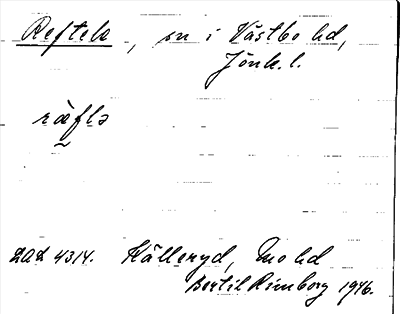 Reftele, sn i Västbo hd,
Jönk. l.
ræflə
LAL 4314. Källeryd, Mo hd
Bertil Rimborg 1946.